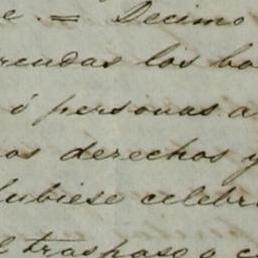 e. = Decimo
rendas los bo
ó personas a
os derechos y
hubiese celebr
l traspaso o c